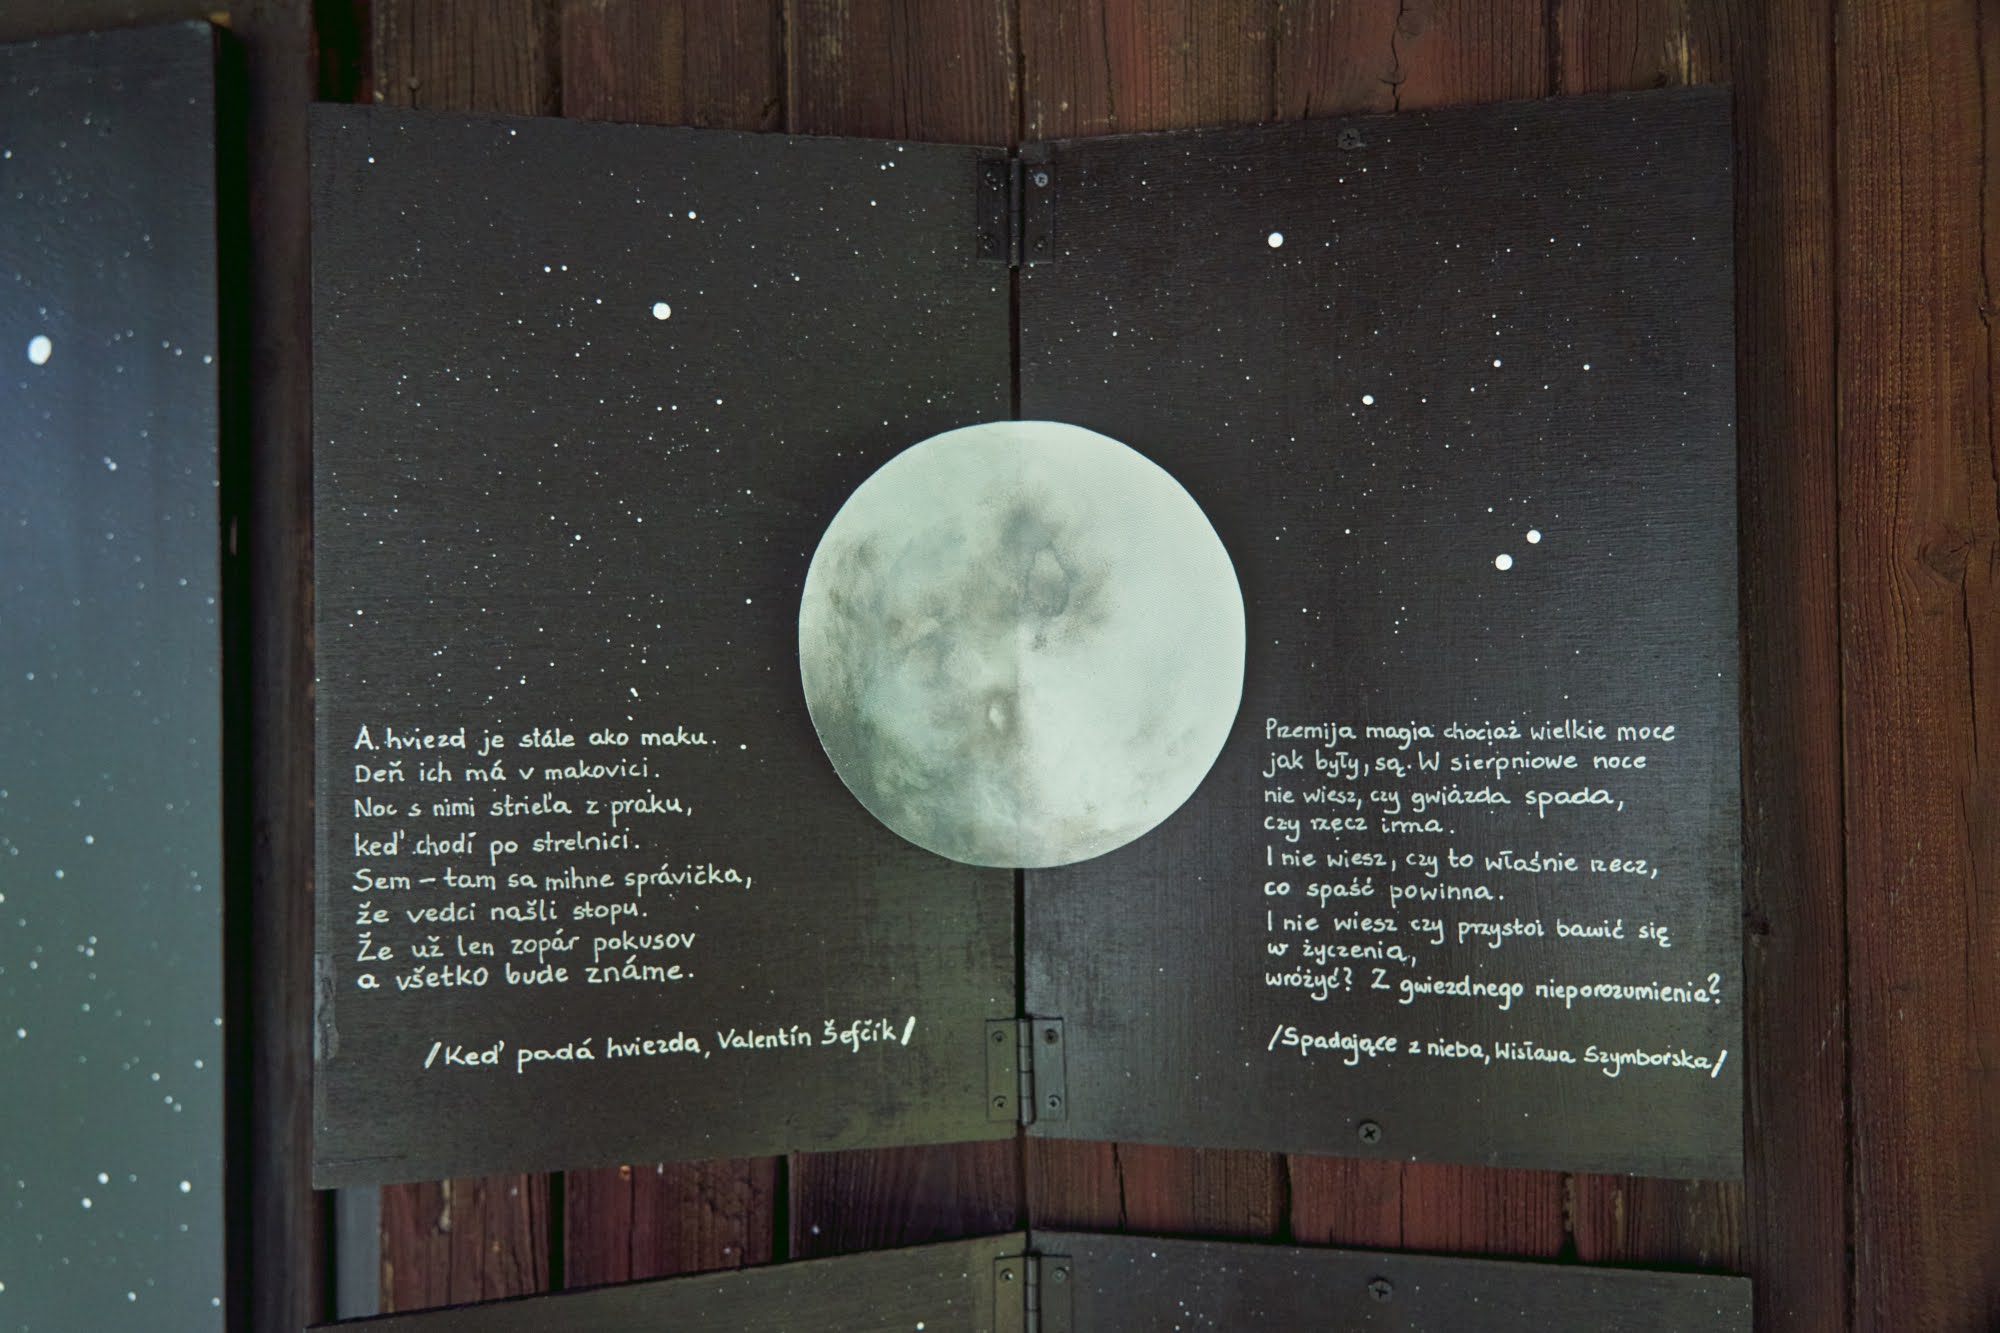 A hviezd je stále ako maku.
Deň ich má v makovici.
Noc s nimi strieľa z praku,
keď chodí po strelnici.
Sem – tam sa mihne správička,
že vedci našli stopu.
Že už len zopár pokusov
a všetko bude známe.
/Keď padá hviezda, Valentín Šefčík/
Przemija magia chociaż wielkie moce
jak były, są. W sierpniowe noce
nie wiesz, czy gwiazda spada,
czy rzecz inna.
I nie wiesz, czy to właśnie rzecz,
co spaść powinna.
I nie wiesz czy przystoi bawić się
w życzenia,
wróżyć? Z gwiezdnego nieporozumienia?
/Spadające z nieba, Wisława Szymborska/